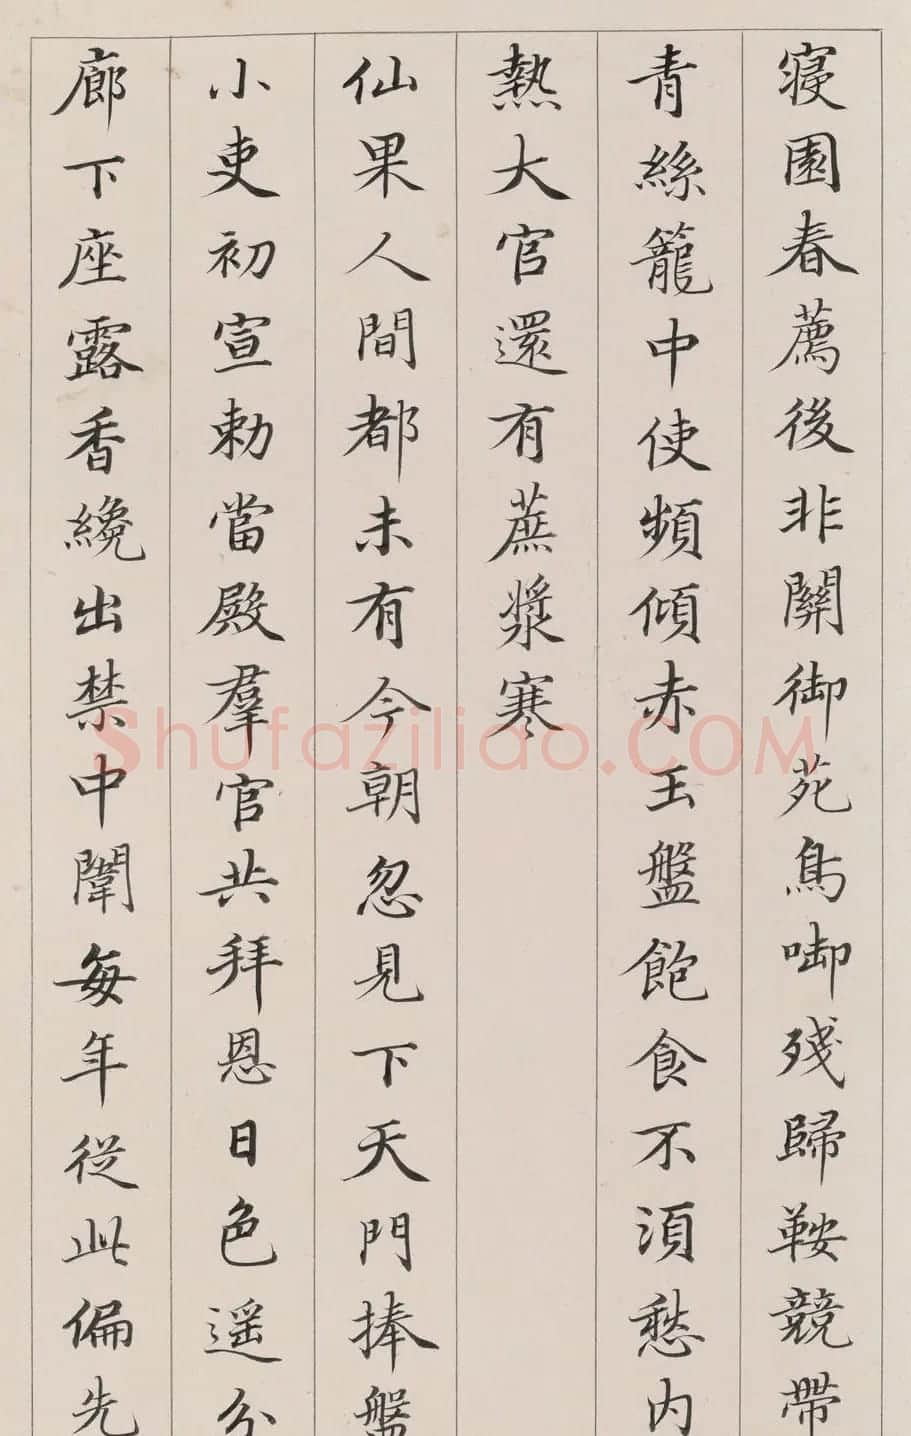 寝園春薦後非關御苑鳥啣殘歸鞍競帶
青絲籠中使頻傾赤玉盤飽食不須愁内
熱大官還有蔗漿寒
仙果人間都未有今朝忽見下天門捧盤
小吏初宣勅當殿羣官共拜恩日色遥分
廊下座露香纔出禁中闈每年從此偏先
Shufaziliao.COM